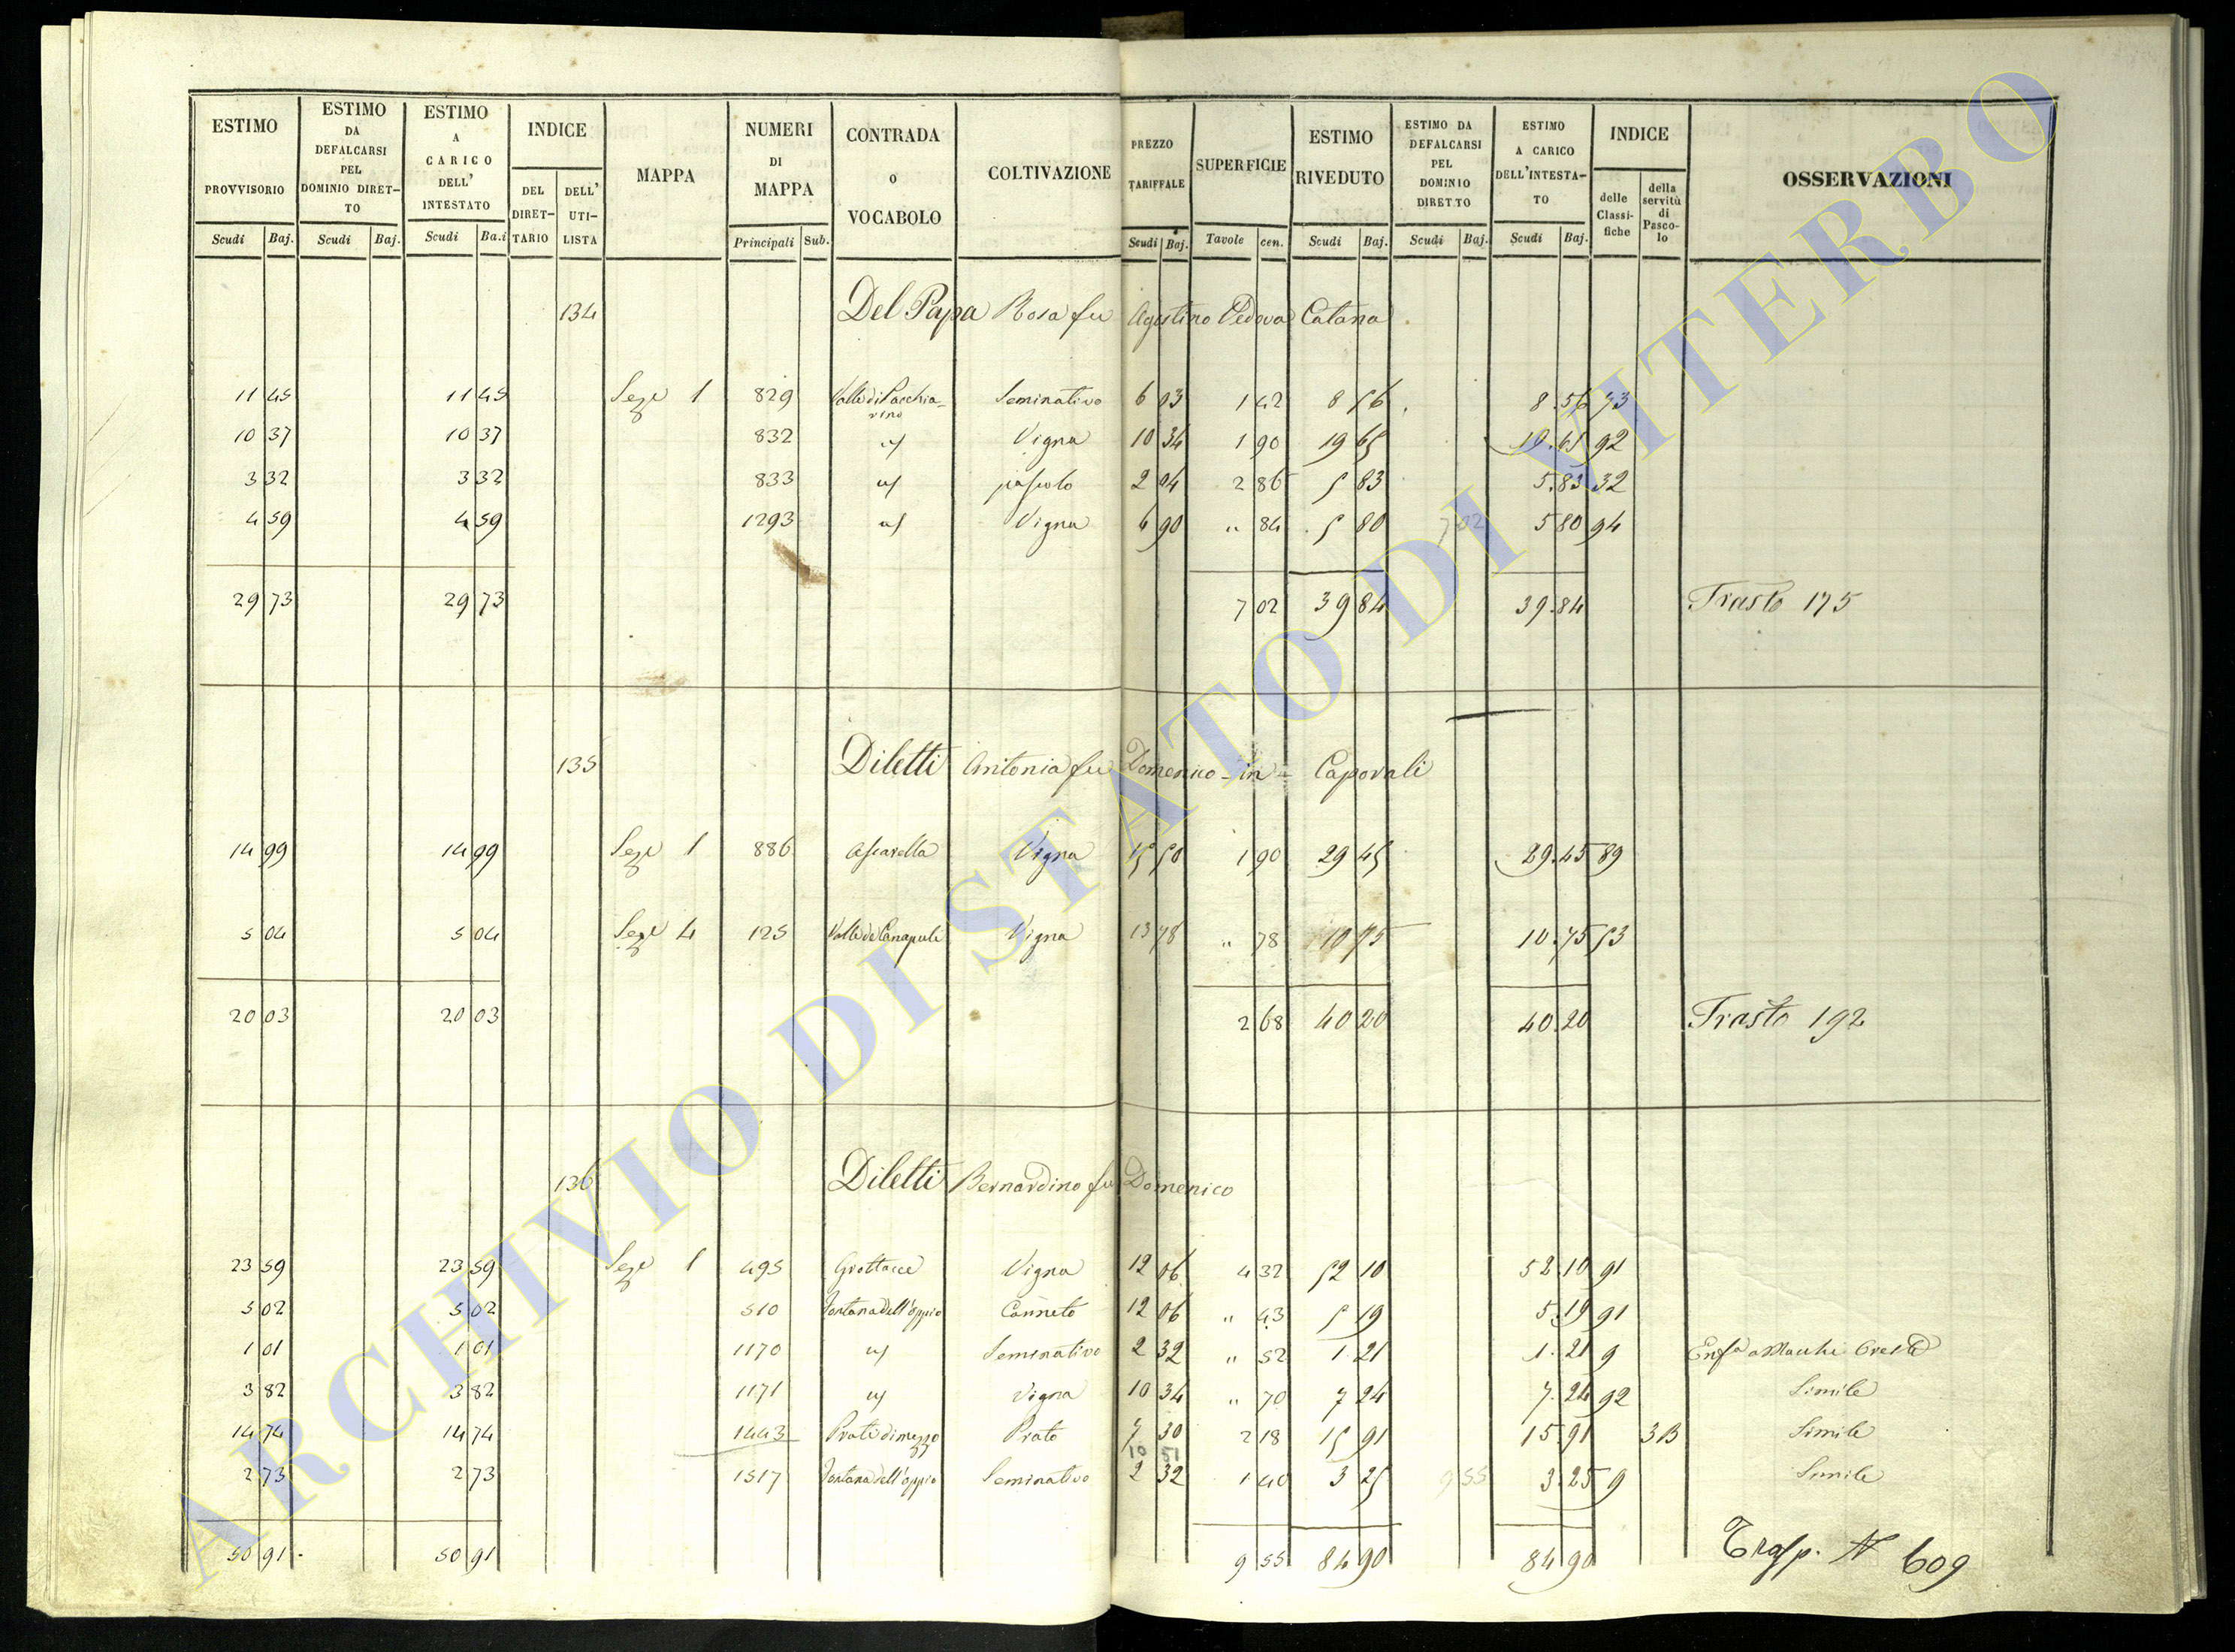 ESTIMO PROVVISORIO | ESTIMO DA DEFALCARSI PEL DOMINIO DIRETTO | ESTIMO A CARICO DELL' INTESTATO | INDICE | MAPPA | NUMERI DI MAPPA | CONTRADA O VOCABOLO | COLTIVAZIONE | PREZZO TARIFFALE | SUPERFICIE | ESTIMO RIVEDUTO | ESTIMO DA DEFALCARSI PEL DOMINIO DIRETTO | ESTIMO A CARICO DELL'INTESTATO | INDICE | OSSERVAZIONI
DEL DIRETTARIO | DELL' UTILISTA | delle Classifiche | della servitù di Pascolo
Scudi | Baj. | Scudi | Baj. | Scudi | Ba.i | Principali | Sub. | Scudi | Baj. | Tavole | cen. | Scudi | Baj. | Scudi | Baj. | Scudi | Baj.
134 Del Papa Rosa fu Agostino Vedova Catana
11 45 | 11 45 | Seze 1 | 829 | Valle di Pacchiarino | Seminativo | 6 03 | 1 42 | 8 56 | 8.56 | 73
10 37 | 10 37 | 832 | Vigna | 10 34 | 1 90 | 19 65 | 19.65 | 92
3 32 | 3 32 | 833 | pascolo | 2 04 | 2 86 | 5 83 | 5.83 | 32
4 59 | 4 59 | 1293 | Vigna | 6 90 | " 84 | 5 80 | 7 02 | 5 80 | 94
29 73 | 29 73 | 7 02 | 39 84 | 39.84 | Trasto 175
135 Diletti Antonia fu Domenico - in - Caporali
14 99 | 14 99 | Seze 1 | 886 | Ascarella | Vigna | 15 50 | 1 90 | 29 45 | 29.45 | 89
5 04 | 5 04 | Seze 4 | 125 | Valle de Canapule | Vigna | 13 78 | " 78 | 10 75 | 10.75 | 53
20 03 | 20 03 | 2 68 | 40 20 | 40.20 | Trasto 192
136 Diletti Bernardino fu Domenico
23 59 | 23 59 | Seze 1 | 495 | Grottacce | Vigna | 12 06 | 4 32 | 52 10 | 52.10 | 91
5 02 | 5 02 | 510 | Fontana dell'oppio | Canneto | 12 06 | " 43 | 5 19 | 5.19 | 91
1 01 | 1 01 | 1170 | Seminativo | 2 32 | " 52 | 1.21 | 1.21 | 9
3 82 | 3 82 | 1171 | Vigna | 10 34 | " 70 | 7 24 | 7.24 | 92 | Simile
14 74 | 14 74 | 1443 | Prati di mezzo | Prato | 7 30 | 2 18 | 15 91 | 15 91 | 3B | Simile
2 73 | 2 73 | 1517 | Fontana dell'oppio | Seminativo | 2 32 | 1 40 | 3 25 | 9 55 | 3.25 | 9 | Simile
50 91 | 50 91 | 9 55 | 84 90 | 84 90 | Trasp. N 609
ARCHIVIO DI STATO DI VITERBO